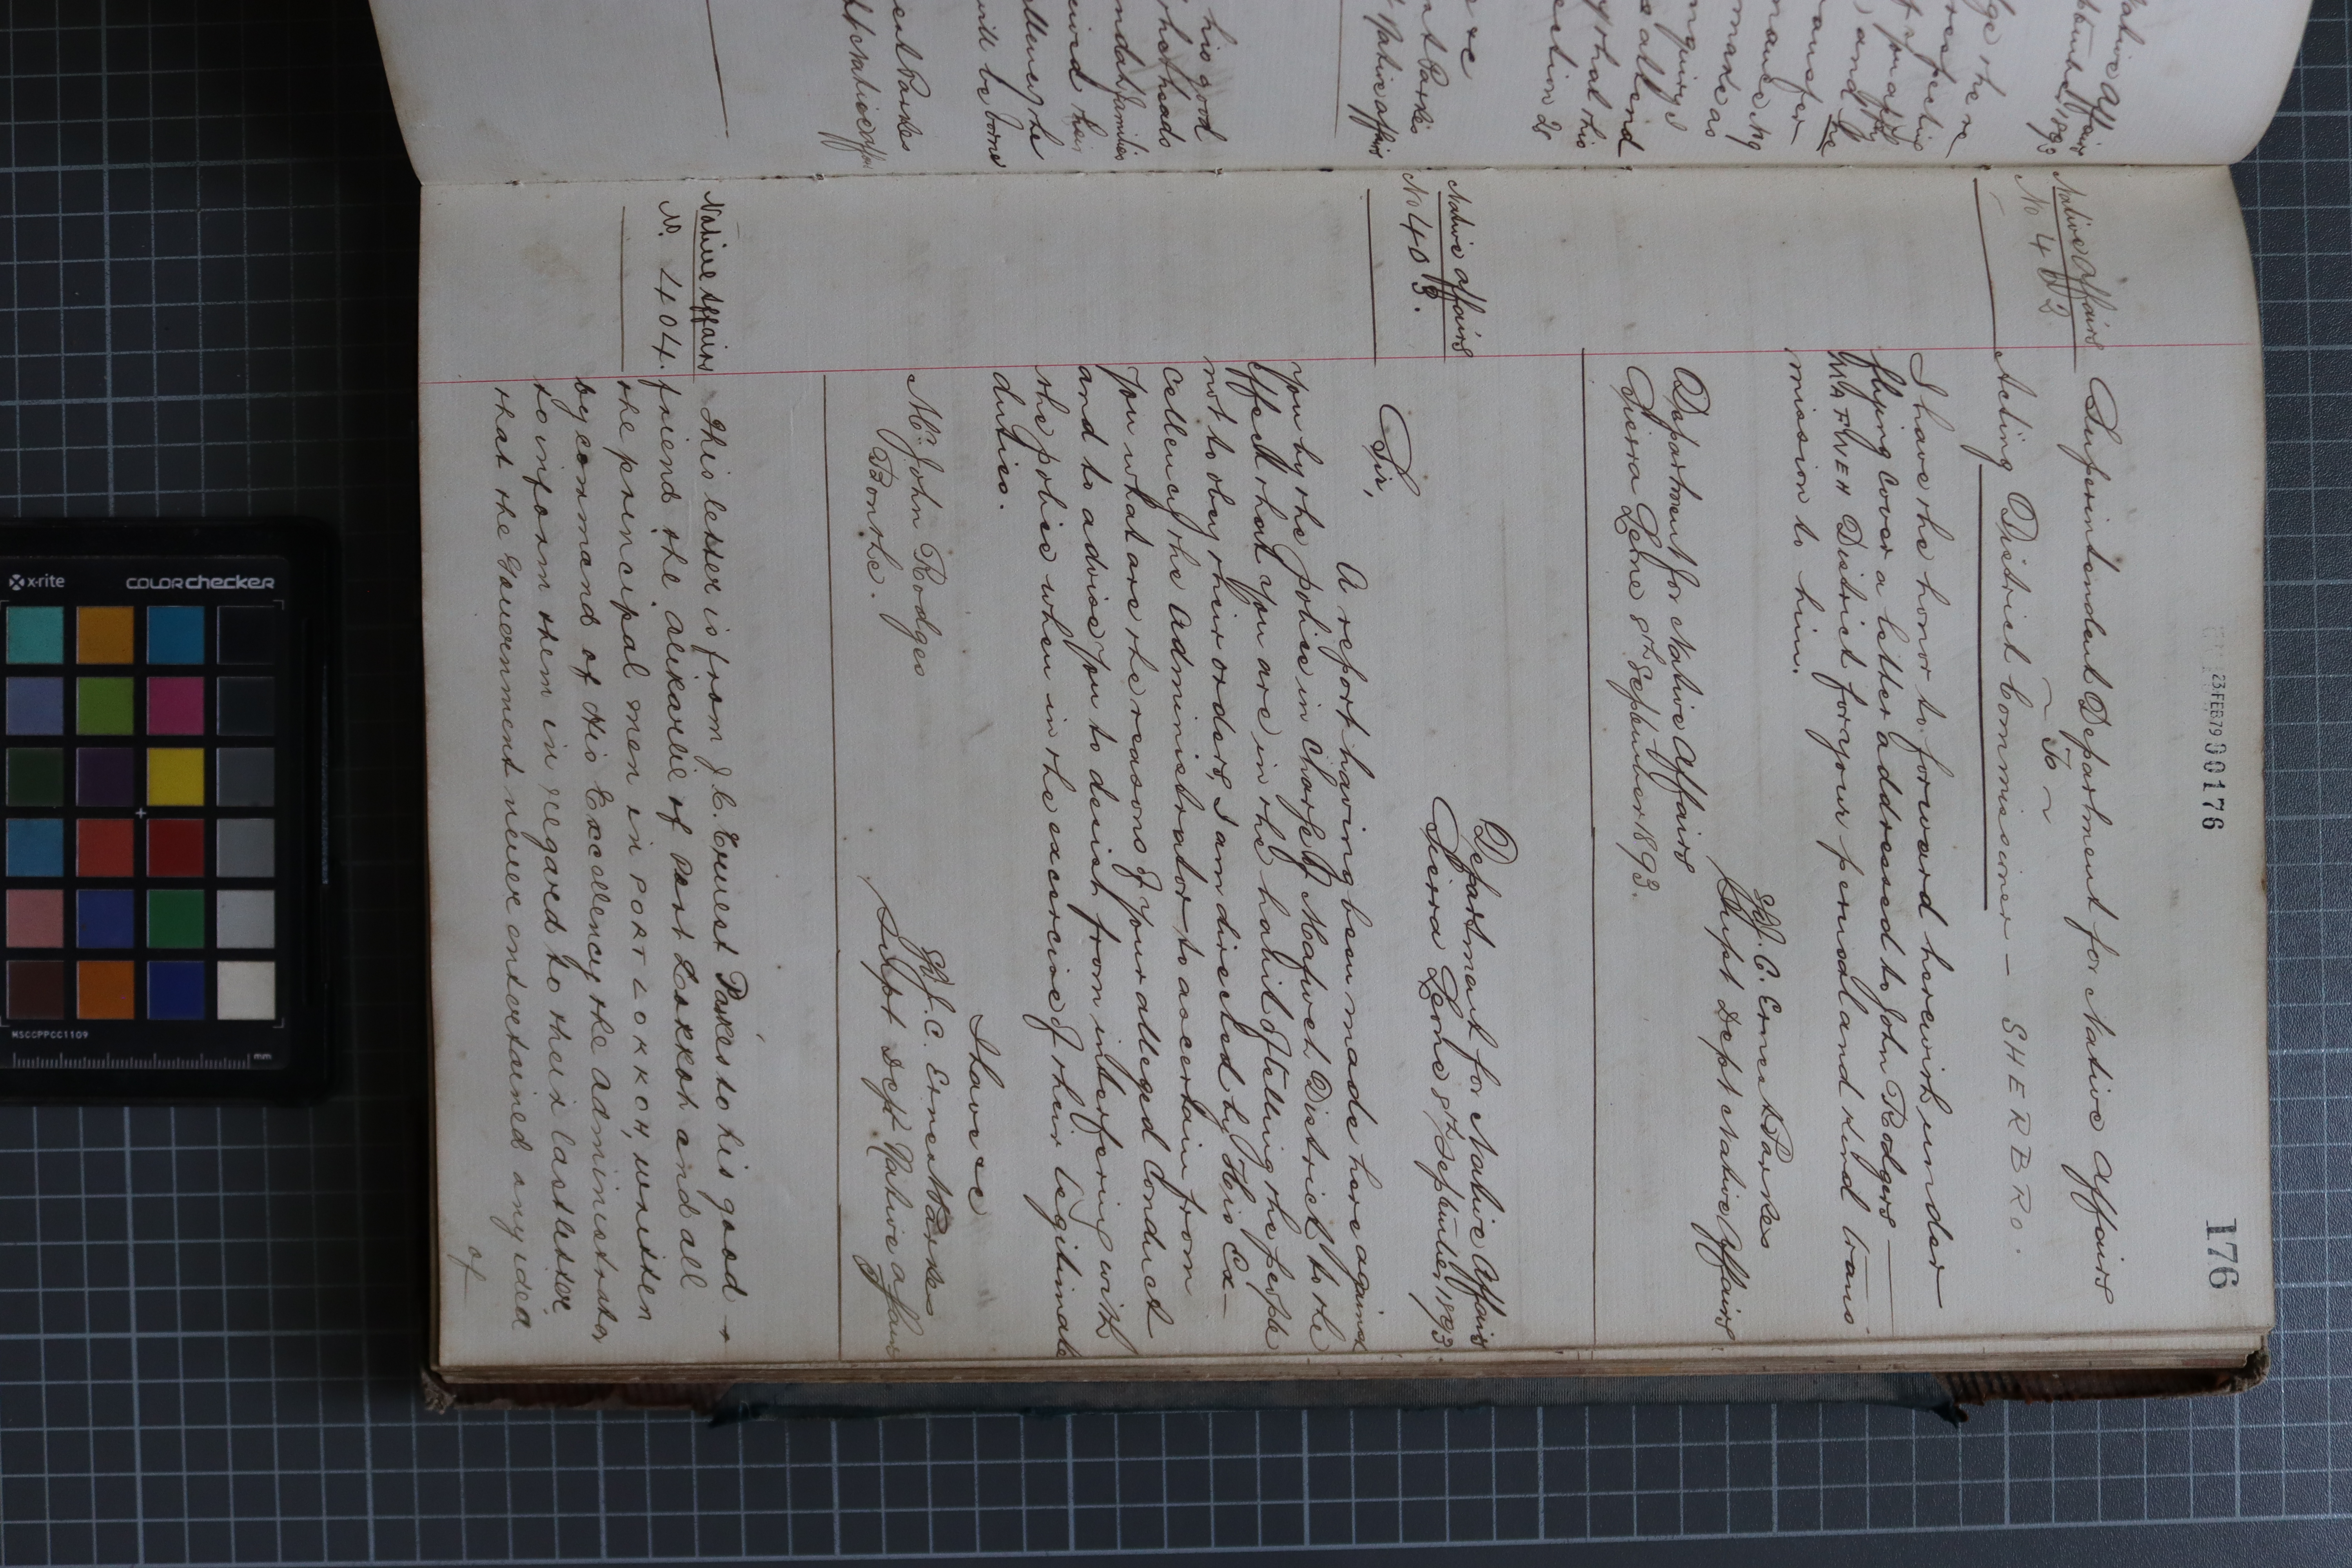 176
23 FEB 79 00176
Native Affairs
No 402
Superintendent Department for Native Affairs
~ To ~
Acting District Commissioner – SHERBRO.
I have the honor to forward herewith under
flying cover a letter addressed to John Rodgers
MAFWEH District for your perusal and kind trans
mission to him.
J. C. Ernest Parkes
Supt Dept Native Affairs
Department for Native Affairs
Sierra Leone 8th September 1893.
Native Affairs
No 403.
Department for Native Affairs
Sierra Leone 8th September, 1893.
Sir,
A report having been made here against
you by the police in charge of Mafweh District to the
effect that you are in the habit of telling the people
not to obey their orders, I am directed by His Ex-
cellency the Administrator to ascertain from
you what are the reasons of your alleged conduct
and to advise you to desist from interfering with
the police when in the exercise of their legitimate
duties.
I have &c
J. C. Ernest Parkes
Supt Dept Native Affairs
Mr. John Rodgers
Bonthe.
Native Affairs
No. 404.
This letter is from J. C. Ernest Parkes to his good
friend the Alikarlie of Port Lokkoh and all
the principal men in PORT LOKKOH, written
by command of His Excellency the Administrator
to inform them in regard to their last letter
that the Government never entertained any idea
of
Native Affairs
1893
and
made as
attend
that his
&c
Parkes
Native Affairs
his good
families
will be borne
Parkes
x-rite
COLORchecker
MSCCPPCC1109
mm